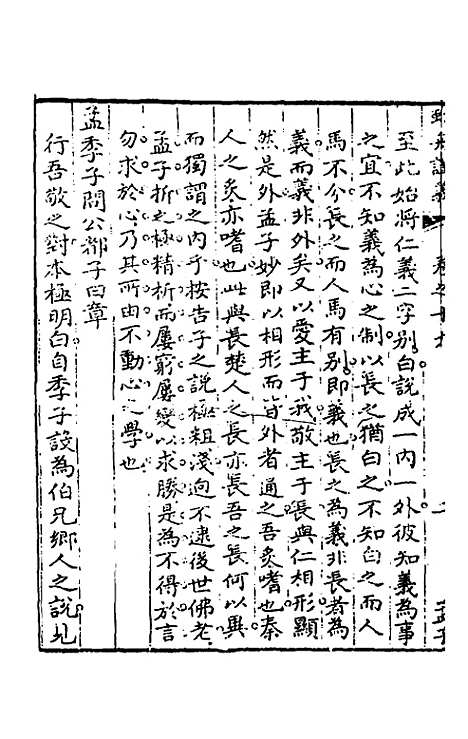 至此始將仁義二字别白說成一内一外彼知義為事
之宜不知義為心之制以長之猶白之不知白之而人
馬不分長之而人馬有别即義也長之為義非長者為
義而義非外矣又以愛主于我敬主于長與仁相形顯
然是外孟子妙即以相形而皆外者通之吾炙嗜也秦
人之炙亦嗜也此與長楚人之長亦長吾之長何以異
而獨謂之内乎按告子之說極粗淺逈不逮後世佛老
孟子折之極精析而屢窮屢變以求勝是為不得於言
勿求於心乃其所由不動心之學也
孟季子問公都子曰章
行吾敬之對本極明白自季子設為伯兄鄉人之說北
卷之十九
二
孟子